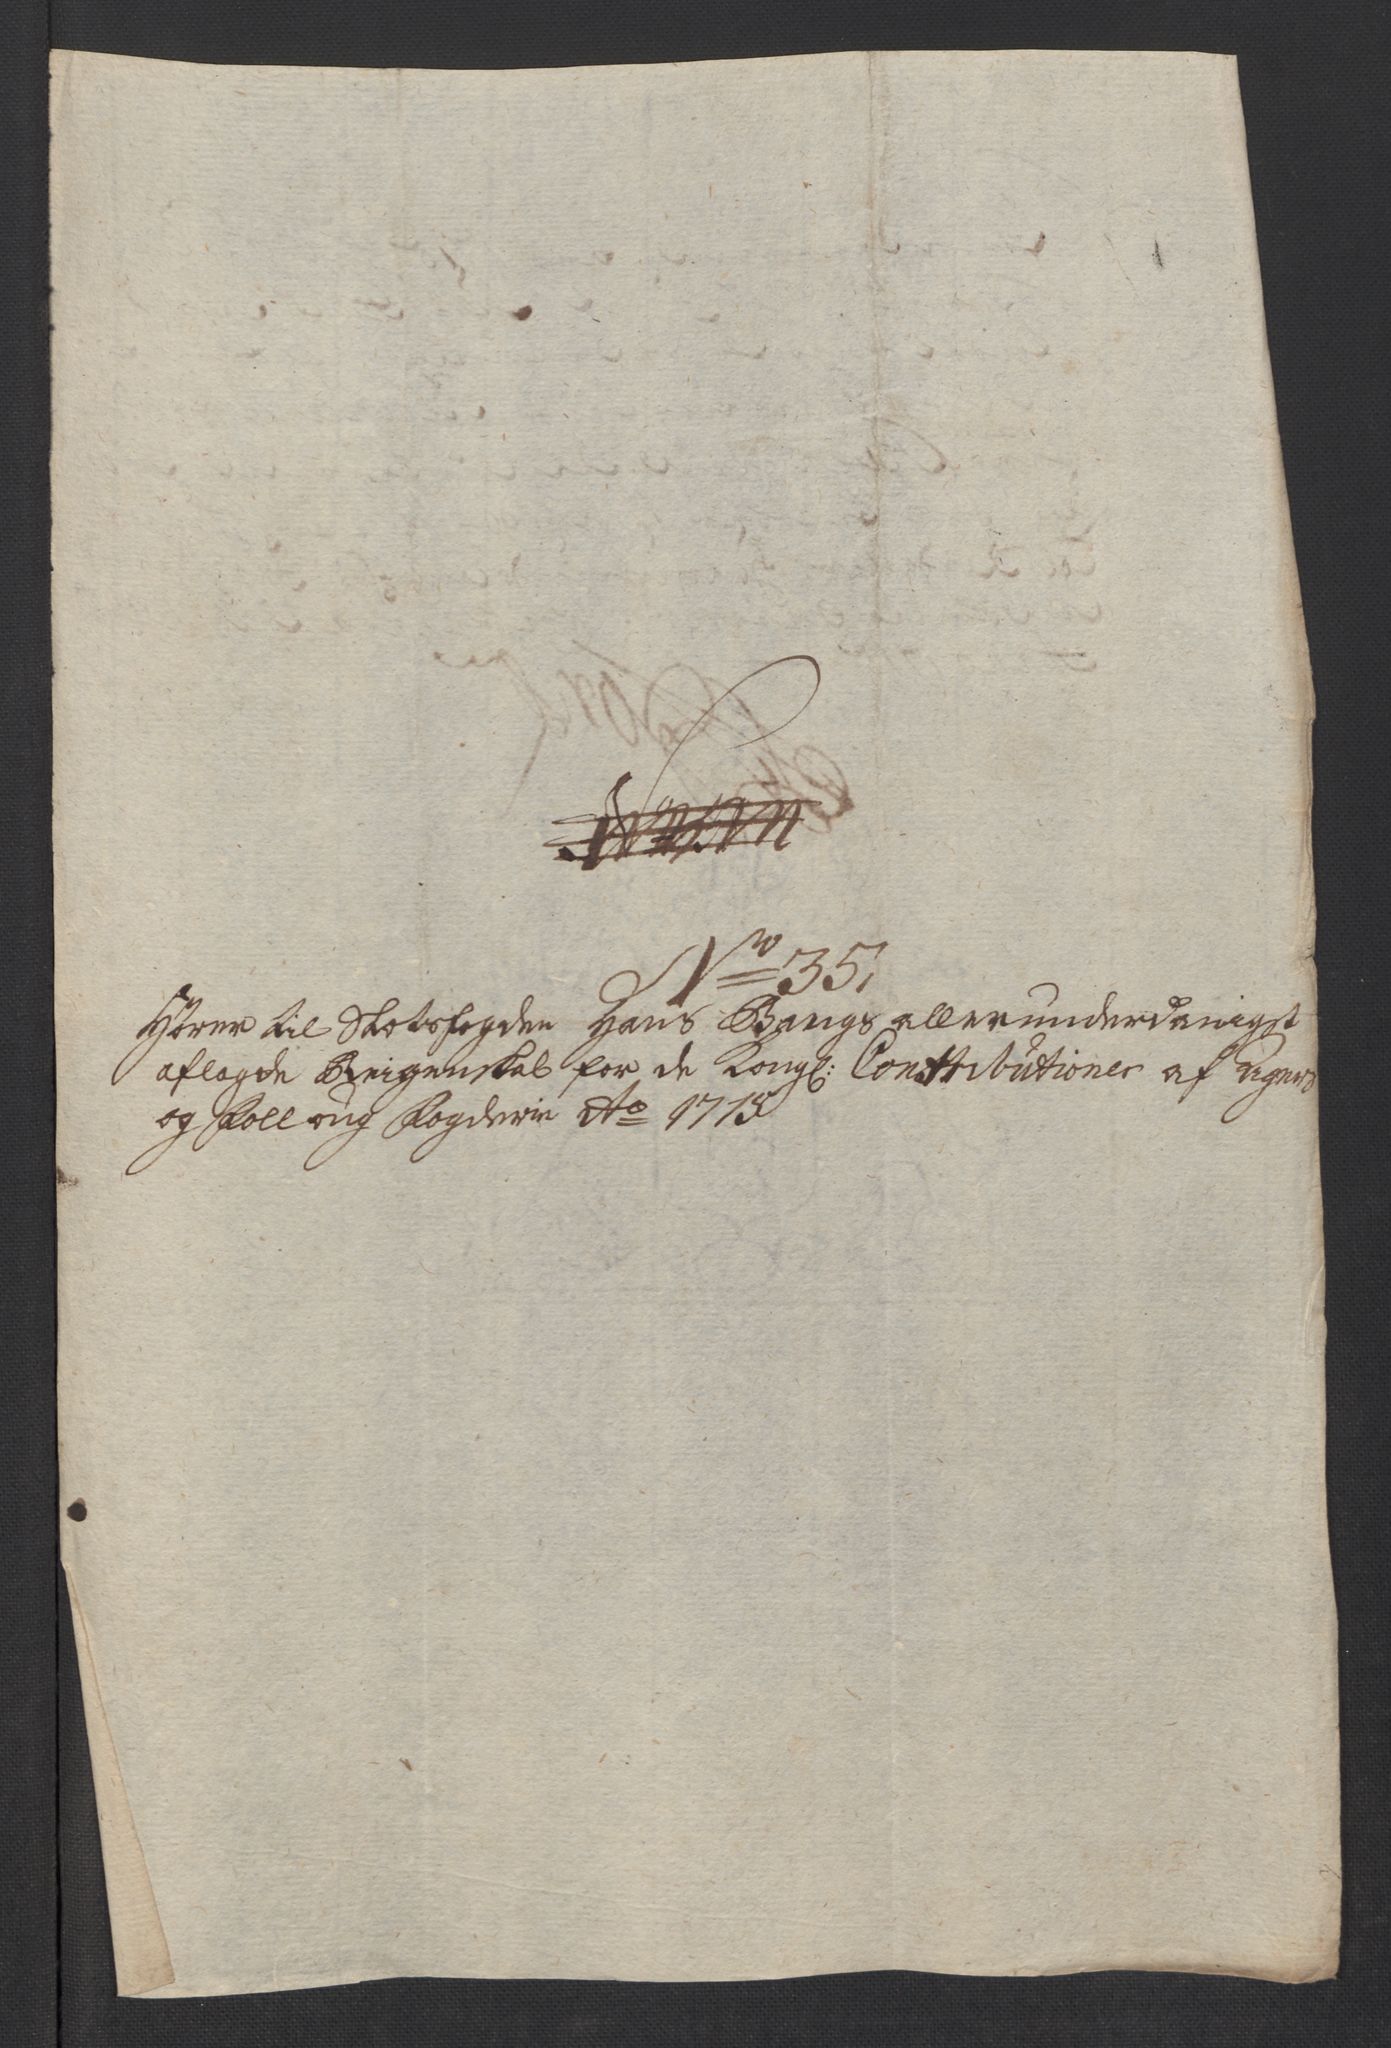 No 35,
Hörer til Slotsfogden Hans Bangs allerunderdanigst
aflagde Reigenskab for de Kongl: Contributioner af Agers
og Foll oug Fogderie Ao 1715